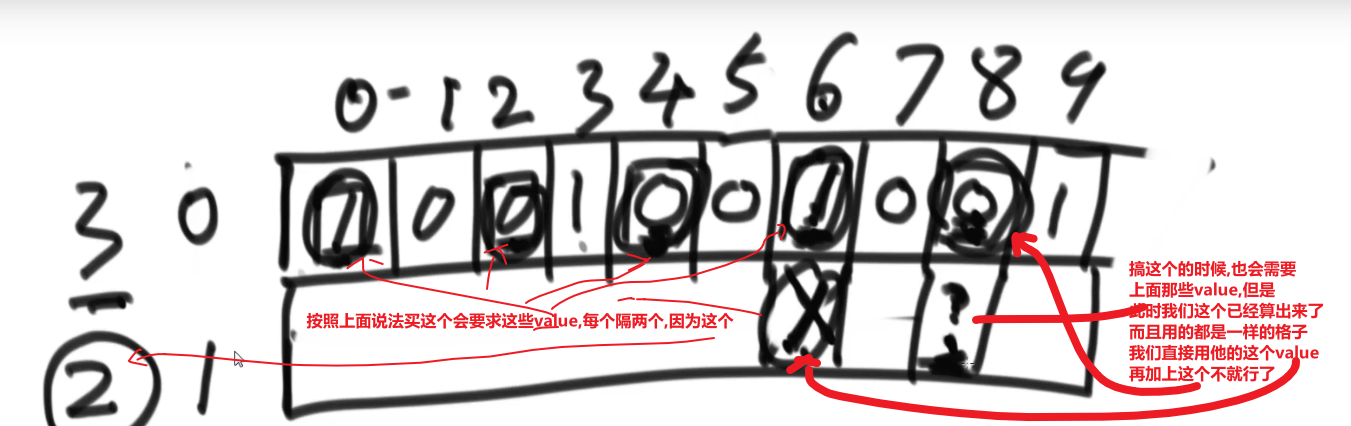 0-1 2 3 4 5 6 7 8 9
3 0 1 0 0 1 0 0 1 0 0 1
按照上面说法买这个会要求这些value,每个隔两个,因为这个
X ?
2 1
搞这个的时候,也会需要
上面那些value,但是
此时我们这个已经算出来了
而且用的都是一样的格子
我们直接用他的这个value
再加上这个不就行了